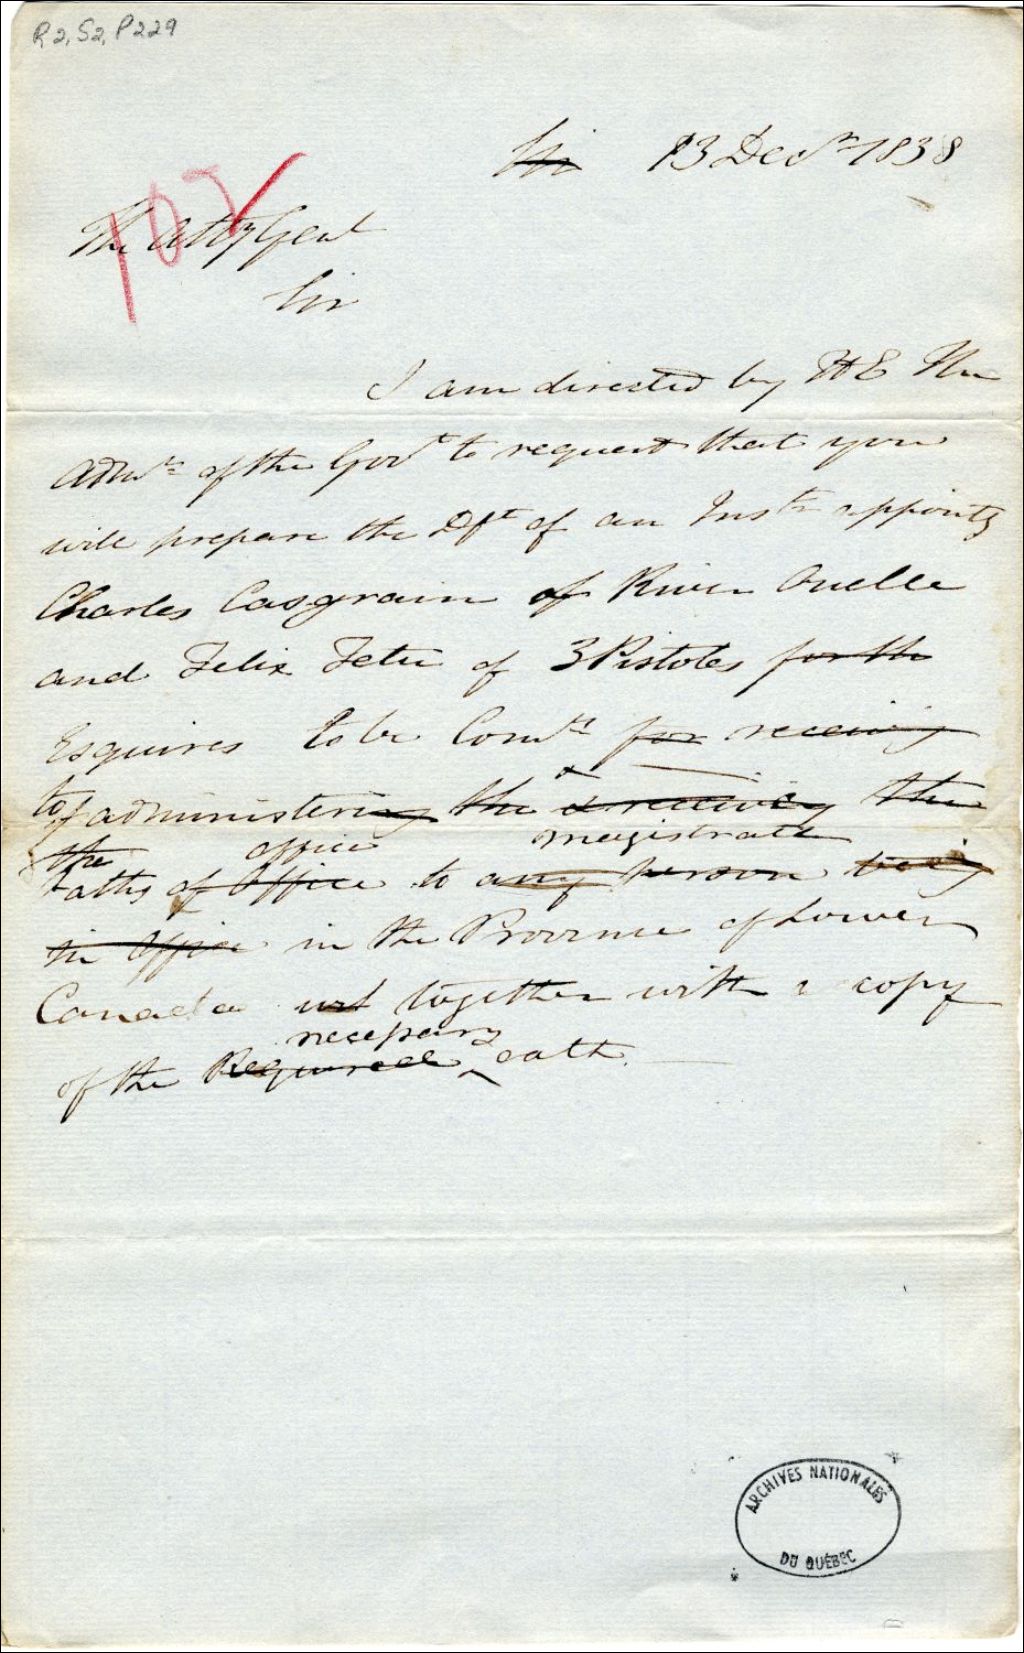 R2, S2, P229
Sir 13 Decr 1838
102
The Atty Genl
Sir
I am directed by H E The
Admr of the Govt to request that you
will prepare the Dft of an Instr appointg
Charles Casgrain of River Ouelle
and Felix Tetu of 3 Pistoles for the
Esquires to be Comrs for receiving
to administering the & receivig the
the office magistrate
oaths of Office to any person being
in Office in the Province of Lower
Canada together with a copy
necessary
of the Required oath.
ARCHIVES NATIONALES
DU QUÉBEC